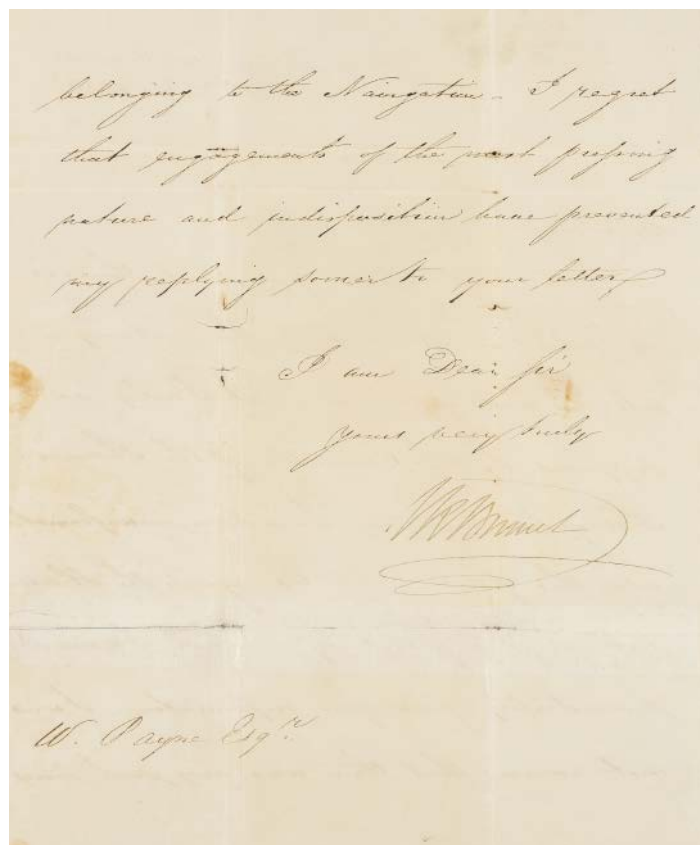 belonging to the Navigation - I regret
that engagements of the most pressing
nature and indisposition have prevented
my replying sooner to your letter,
I am Dear Sir
yours very truly
W. Payne Esqr.